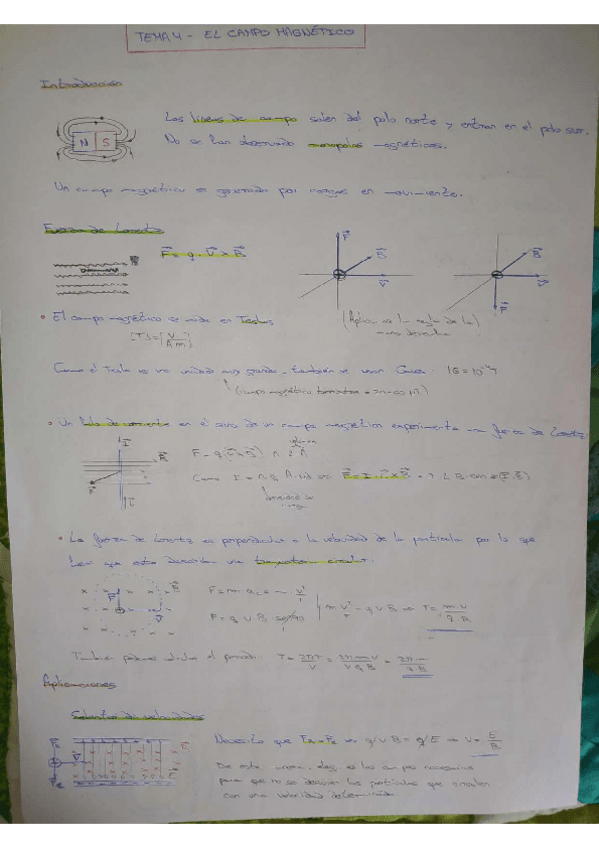 TEMA 4 - EL CAMPO MAGNÉTICO
Introducción
Las líneas de campo salen del polo norte y entran en el polo sur.
N S
No se han observado monopolos magnéticos.
Un campo magnético es generado por cargas en movimiento.
Fuerza de Lorentz
F = q · V x B
F B V
B V F
• El campo magnético se mide en Teslas
(Aplicar la regla de la mano derecha)
[T] = [V / A m]
Como el Tesla es una unidad muy grande, también se usan Gauss: 1G = 10⁻⁴T
(campo magnético terrestre
• Un hilo de corriente en el seno de un campo magnético experimenta una fuerza de Lorentz
F = q (v x B) n L A
Como I = n q A v
F = I · L x B
densidad de
• La fuerza de Lorentz es perpendicular a la velocidad de la partícula por lo que
hará que esta describa una trayectoria circular.
F = m · a = m · v² / r
F = q v B · sen 90
m v² / r = q v B ⇒ r = m · v / q · B
También podemos calcular el periodo: T = 2πr / V = 2π m v / v q B = 2π · m / q · B
Aplicaciones
Selector de velocidades
Necesito que q v B = q E ⇒ v = E / B
De esta manera, elegimos los campos necesarios
para que no se desvíen las partículas que circulen
con una velocidad determinada.